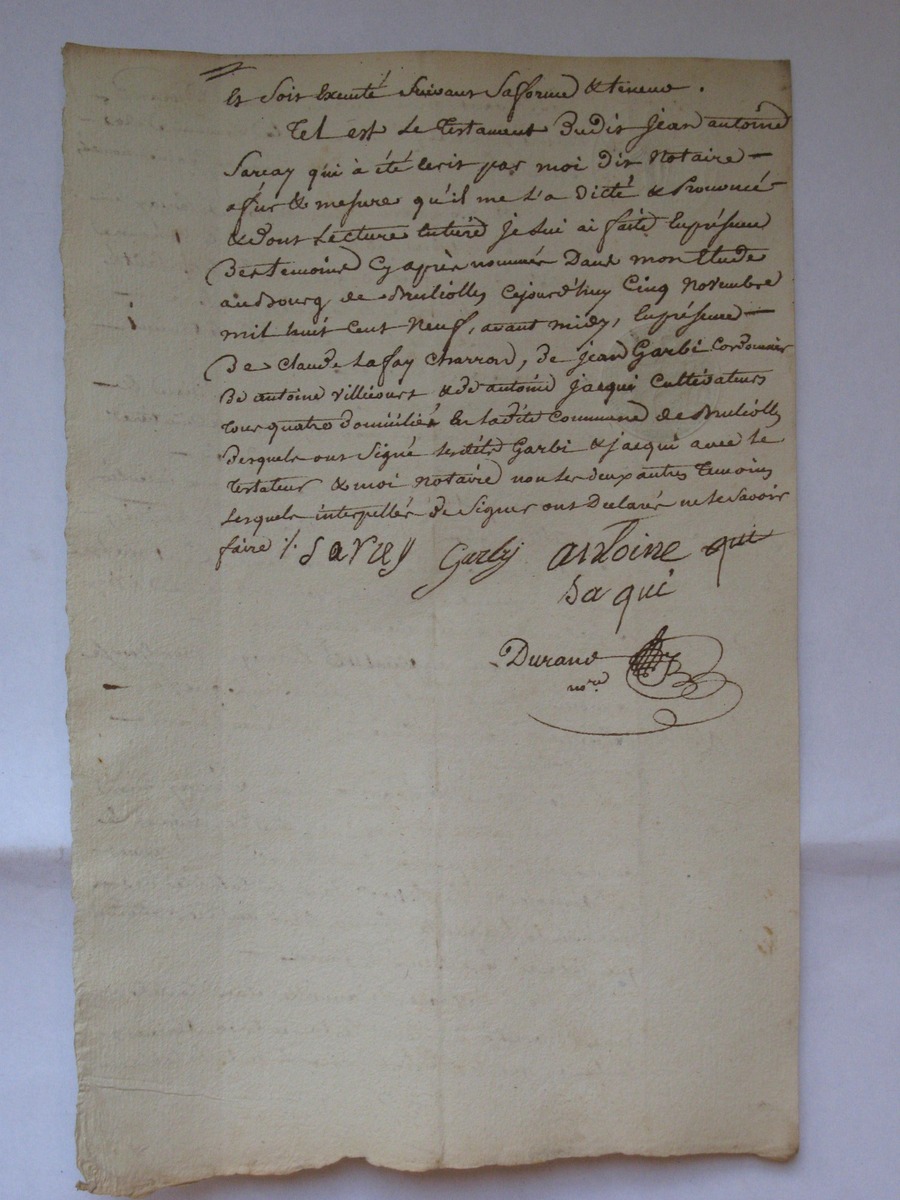 et soit exécuté suivant sa forme & teneur.
Tel est le testament dudit jean antoine
Sarcay qui à été écrit par moi dit notaire
a fur & mesure qu'il me l'a dicté & prononcé
& dont lecture entière je lui ai faite enprésence
des temoins cy après nommés dans mon Etude
au bourg de Brulliolles cejourd'huy cinq novembre
mil huit cent neuf, avant midy, enprésence
de claude Lafay charron, de jean Garbi cordonnier
de antoine villecourt & de antoine jacqui cultivateurs
tous quatre domiciliés en ladite commune de Brulliolles
desquels ont signé lesdits Garbi & jacqui avec le
testateur & moi notaire non les deux autres temoins
lesquels interpellés de signer ont declaré ne le savoir
faire /. Sarcey Garby antoine qui
Jaqui
Durand
no.re